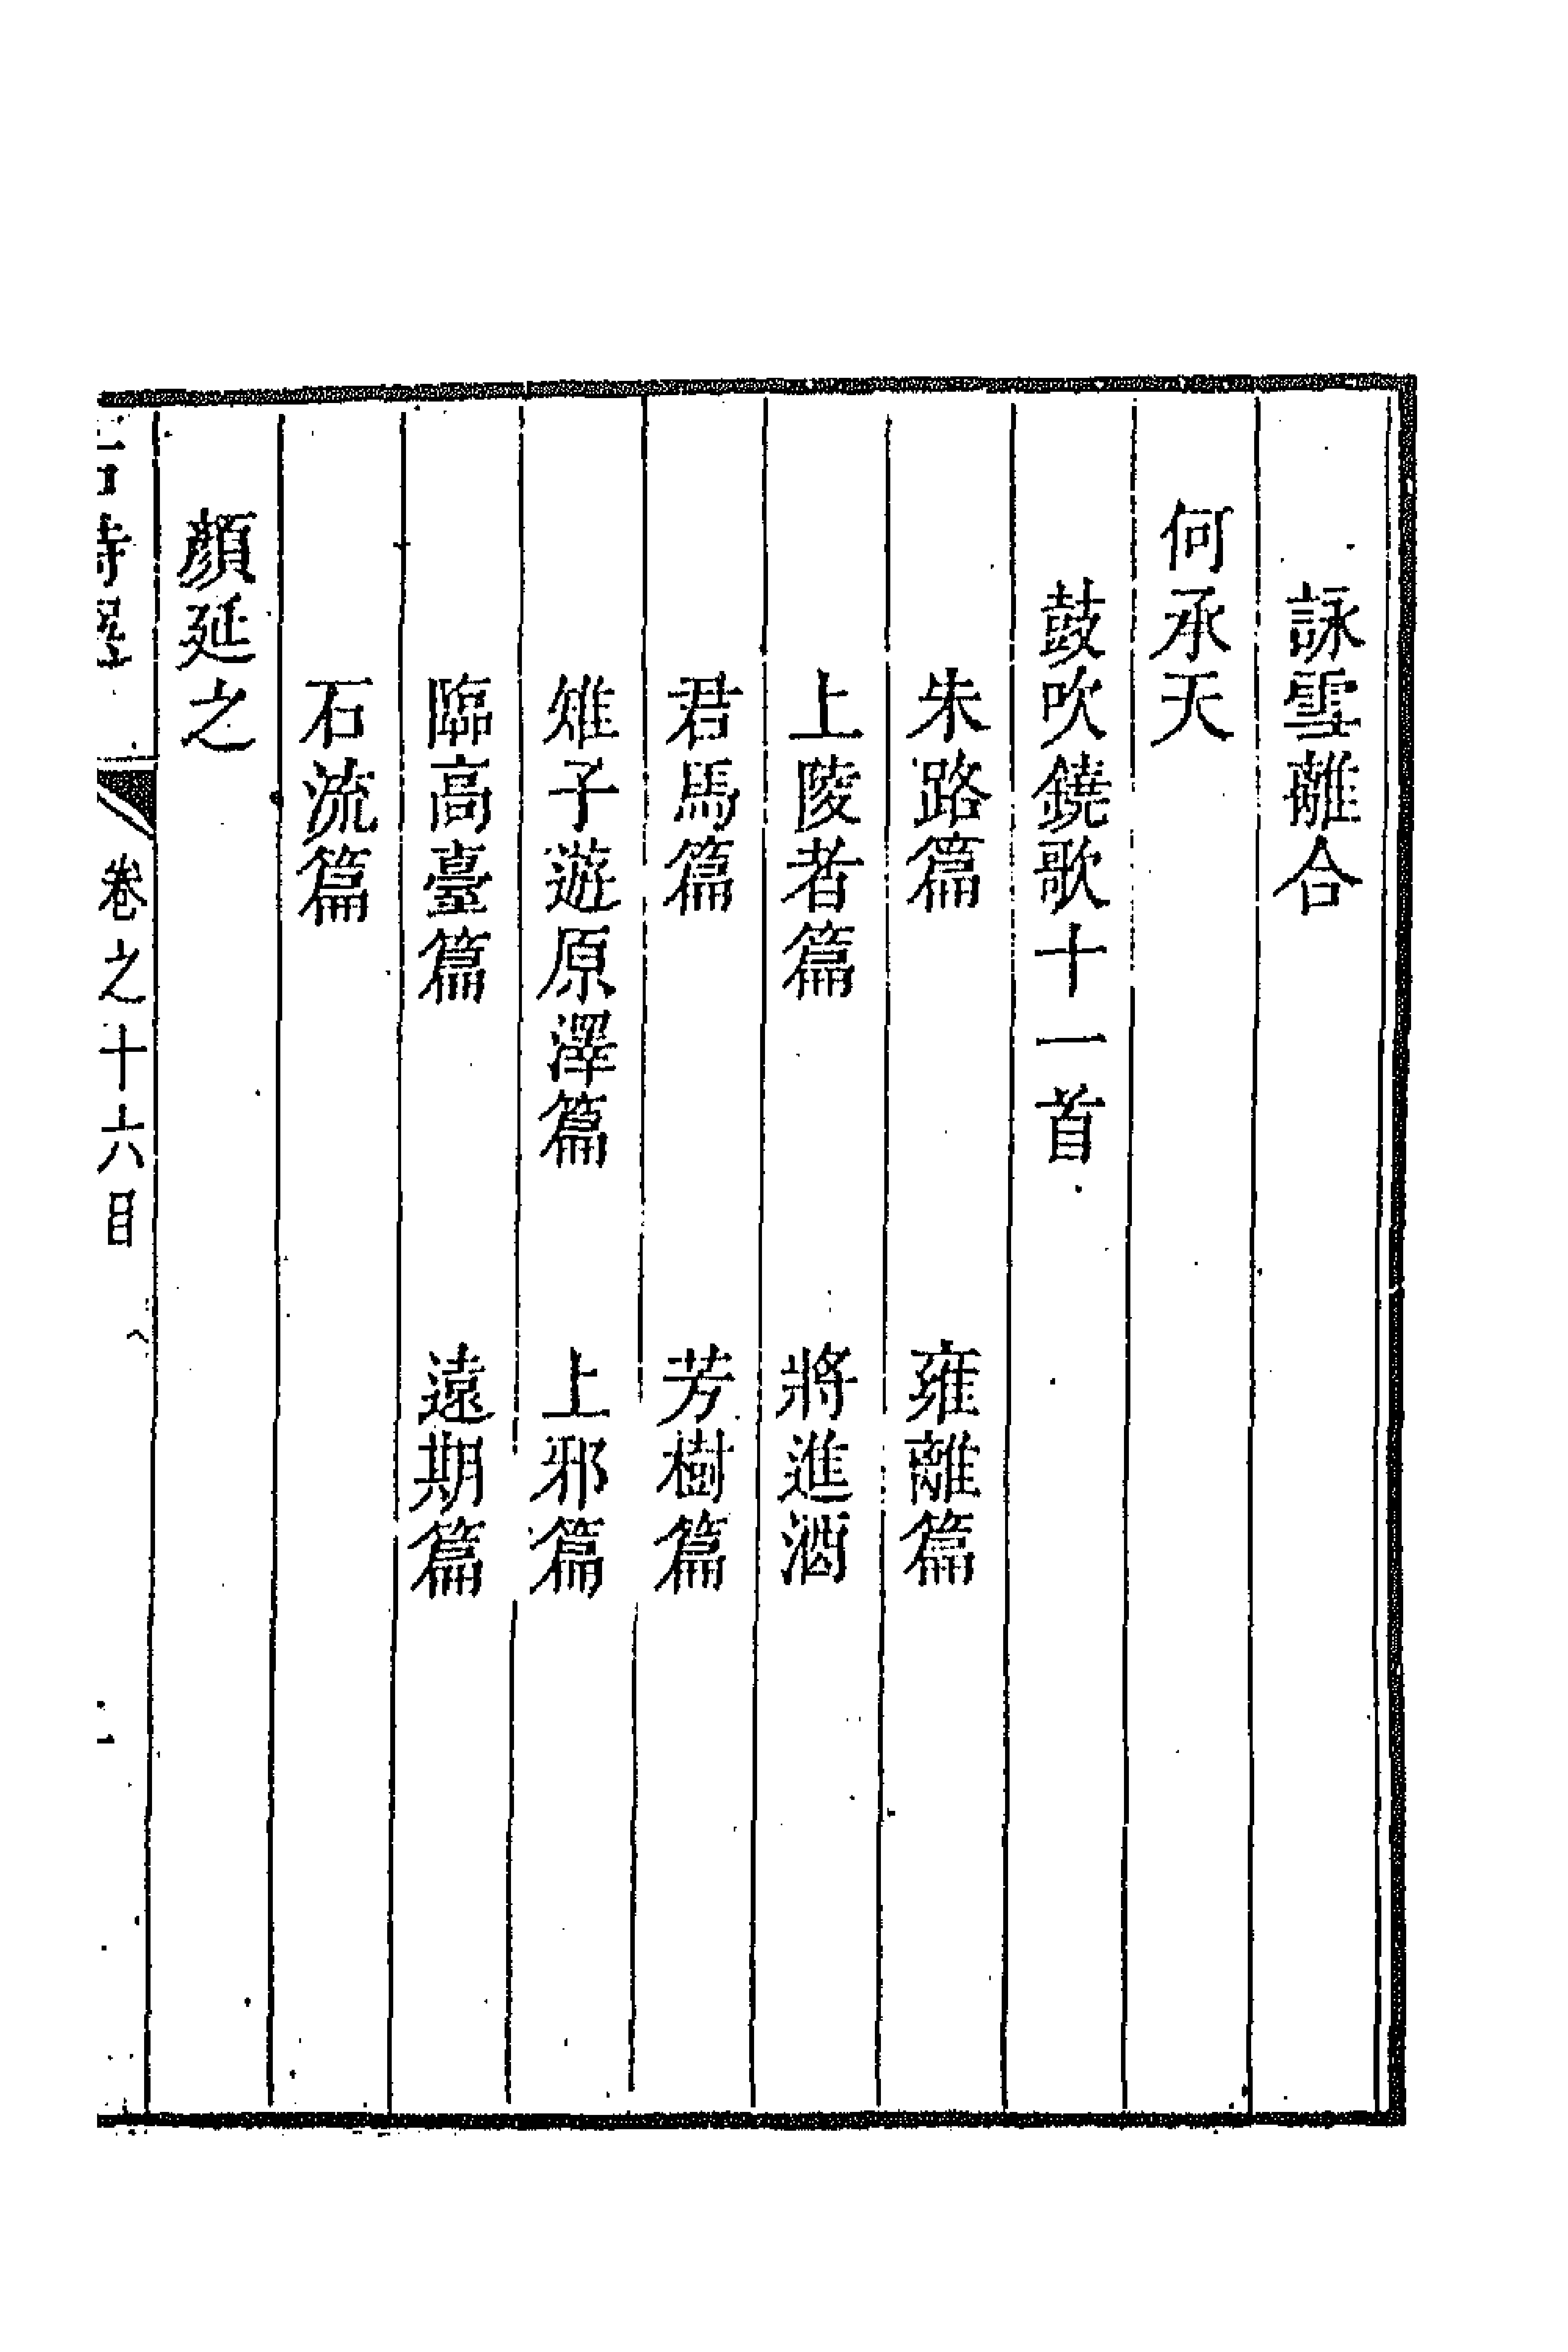 詠雪離合
何承天
鼓吹鐃歌十一首
朱路篇　雍離篇
上陵者篇　將進酒
君馬篇　芳樹篇
雉子遊原澤篇　上邪篇
臨高臺篇　遠期篇
石流篇
顏延之
卷之十六目